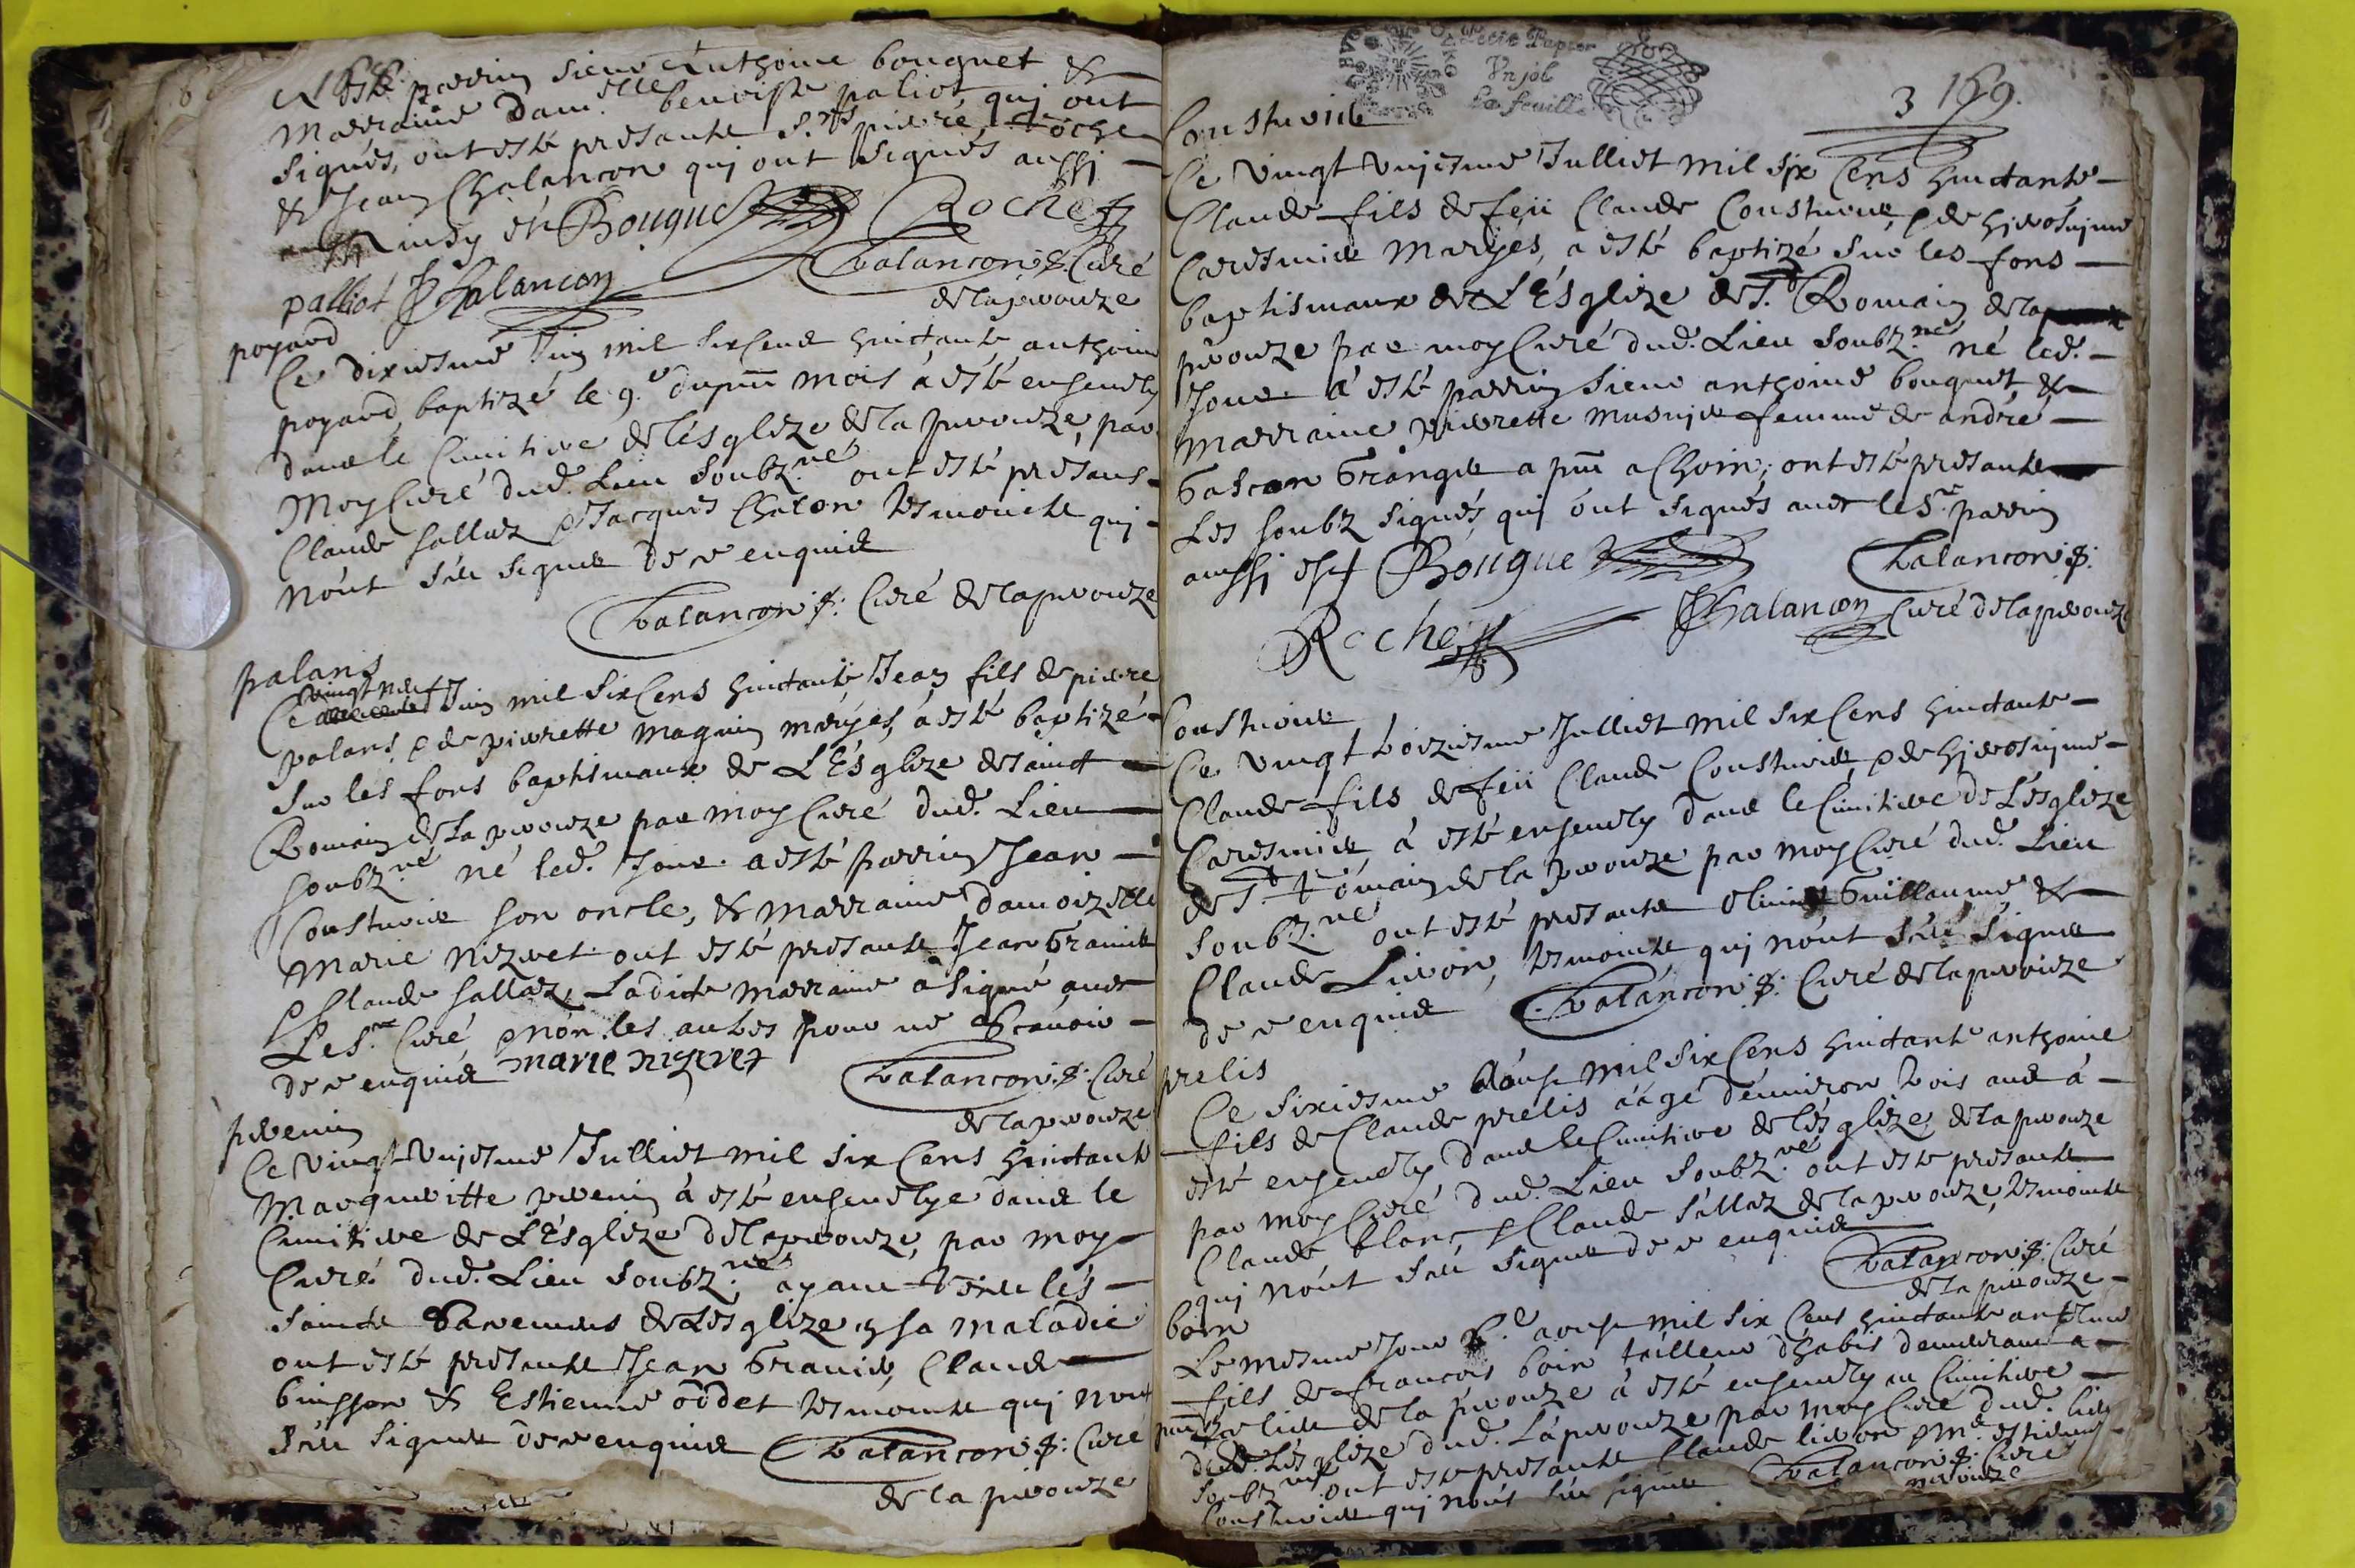 a esté parrin sieur Anthoine bouquet &
marraine dam.elle benoiste paliot qui ont
signés, ont esté presants S.rs pierre roche
& Jean Chalancon qui ont signés aussi
Bouquet Roche
palliot JChalancon Chalancon p. Curé
de laperouze
poyard
Ce dixiesme Juin mil six Cens huictante anthoine
poyard baptizé le 9.e du pnt mois a esté ensevely
dans le Cimitiere de lésglize de la perouze, par
Moy Curé dud. Lieu soubz.né ont esté presans
Claude sallaz & Jacques Chalon tesmoints qui
nónt sceu signer de ce enquis
Chalancon p. Curé de laperouze
palans
Ce vingt neuf Juin mil six Cens huictante Jean fils de pierre
palans, & de pierrette magnin maryés, á esté baptizé
sur les fons baptismaux de L'Ésglize de sainct
Romain de La perouze par moy Curé dud. Lieu
soubz.né né led. Jour. a esté parrin Jean
Cousturier son oncle, & marraine damoizelle
Marie nizeret ont esté presants Jean Granier
& Claude sallaz, Ladicte marraine a signé avec
Le S.r Curé & non les autres pour ne Scavoir
de ce enquis marie nizeret
Chalancon p. Curé
de la perouze
pevenin
Ce vingt unjesme Julliet mil six Cens huictante
Margueritte pevenin á esté ensevelye dans le
Cimitiere de L'Ésglize de laperouze, par moy
Curé dud. Lieu soubz.né ayant receu lés
saincts sacremens de Lésglize en sa maladie
ont esté presants Jean Granier, Claude
buisson & Estienne oddet tesmoints qui nont
sceu signer de ce enquis Chalancon p. Curé
de la perouze
Petit Papier
Un sol
La feuille
3 169.
Cousturier
Ce vingt unjesme Julliet mil six Cens huictante
Claude fils de feü Claude Cousturier, & de hierosnime
Caresmier maryés, a esté baptizé sur les fons
baptismaux de L'Ésglize de St. Romain de la
perouze par moy Curé dud. Lieu soubz.né né led.
Jour. a esté parrin sieur anthoine bouquet, &
marraine pierrette musnier femme de andré
Gascon Granger a pnt a Choin; ont esté presants
Les soubz signés, qui ont signés avec le S.r parrin
aussi Bouquet Chalancon p.
Roche JChalancon Curé de laperouze
Cousturier
Ce vingt troiziesme Julliet mil six Cens huictante
Claude fils de feü Claude Cousturier, & de hierosnime
Caresmier á esté ensevely dans le Cimitiere de L'ésglize
de St romain de la perouze par moy Curé dud. Lieu
soubz.né ont esté presants Guillaume &
Claude Livon, tesmoints qui nónt sceu signer
de ce enquis Chalancon p. Curé de la perouze
prelis
Ce sixiesme Aoust mil six Cens huictante anthoine
fils de Claude prelis áagé denviron trois ans á
esté ensevely dans le Cimitiere de lésglize de la perouze
par moy Curé dud. Lieu soubz.né ont esté presants
Claude blanc & Claude sallaz de la perouze, tesmoints
qui nónt sceu signer de ce enquis
Chalancon p. Curé
de la perouze
boin
Le mesme Jour 6.e aoust mil six Cens huictante anthoine
fils de francois boin tailleur d'habis demeurant a
de la perouze á esté ensevely au Cimitiere
de Lésglize dud. Laperouze par moy Curé dud. lieu
soubz.né ont esté presants Claude livon & M.e estienne
Cousturier qui nónt sceu signer Chalancon p. Curé
perouze